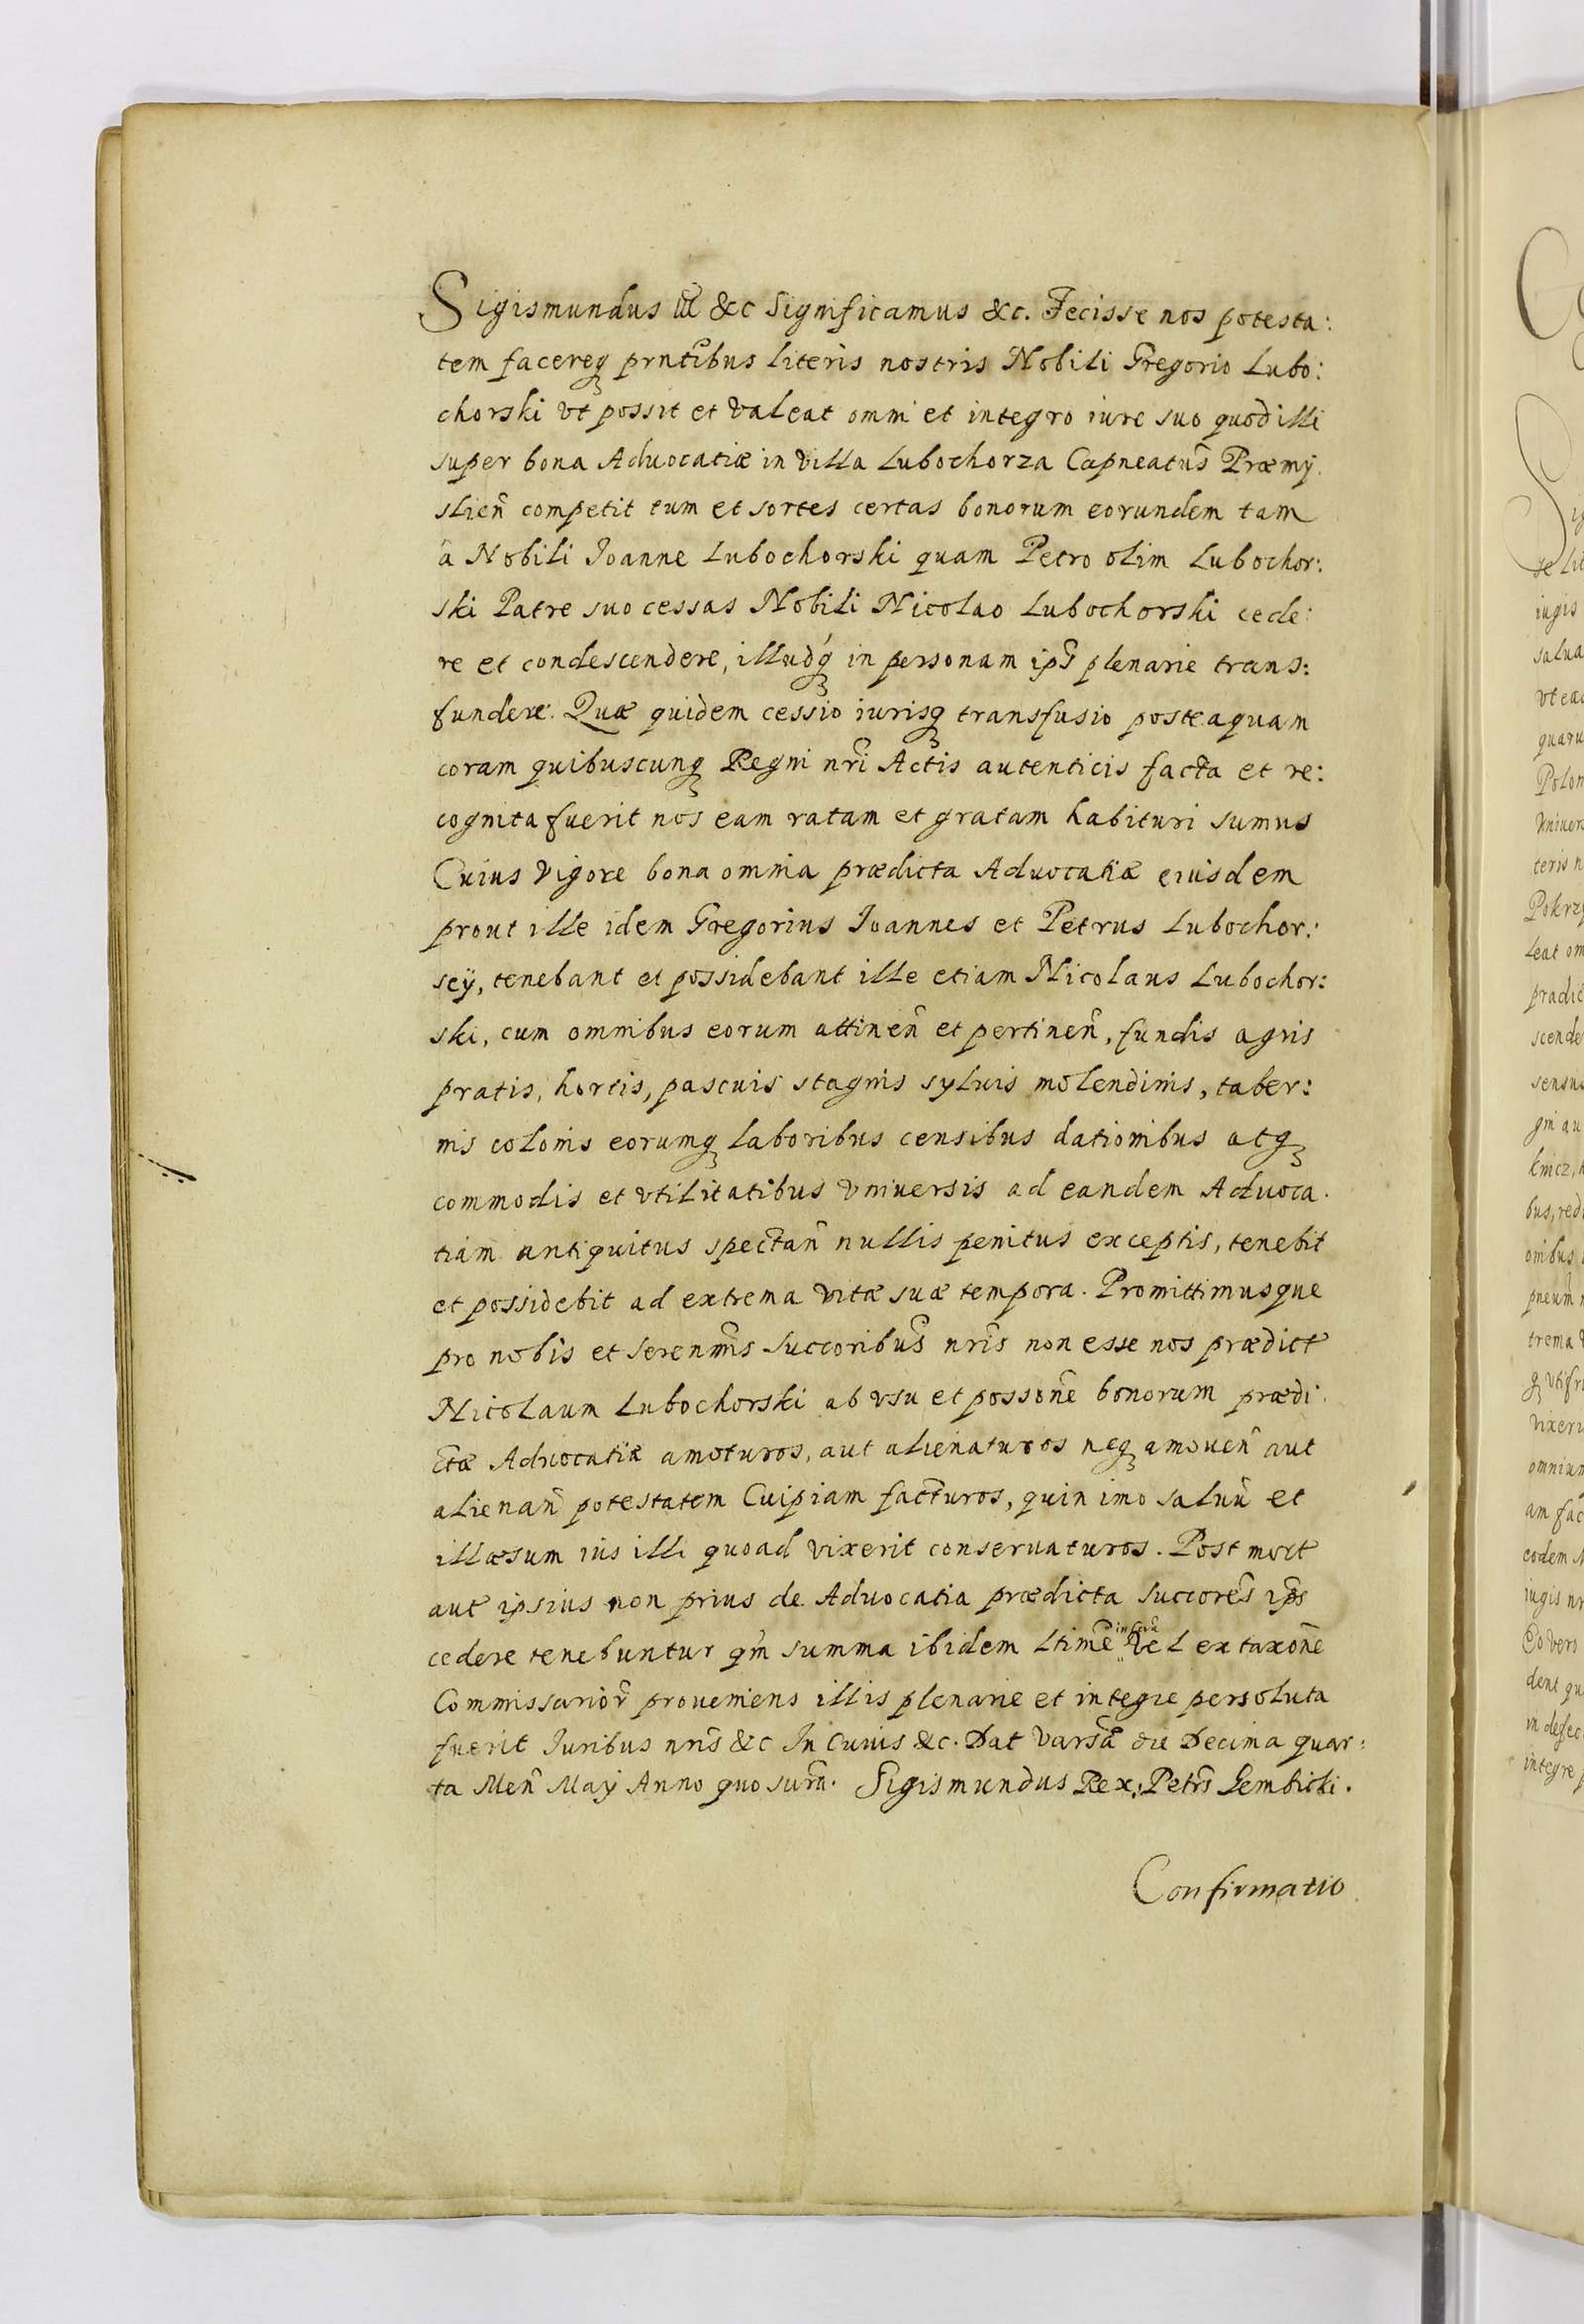 Sigismundus III &c Significamus &c. Fecisse nos potesta:
tem facereq prntibus literis nostris Nobili Gregorio Lubo:
chorski vt possit et valeat omni et integro iure suo quod illi
super bona Aduocatiæ in villa Lubochorza Capneatus Præmy
slien competit tum et sortes certas bonorum eorundem tam
a Nobili Joanne Lubochorski quam Petro olim Lubochor:
ski Patre suo cessas Nobili Nicolao Lubochorski cede:
re et condescendere, illudq in personam ips plenarie trans:
fundere. Quæ quidem cessio iurisq transfusio posteaquam
coram quibuscunq Regni nri Actis autenticis facta et re:
cognita fuerit nos eam ratam et gratam habituri sumus
Cuius vigore bona omnia prædicta Aduocatiæ eiusdem
prout ille idem Gregorius Joannes et Petrus Lubochor:
scÿ, tenebant et possidebant ille etiam Nicolaus Lubochor:
ski, cum omnibus eorum attinen et pertinen, fundis agris
pratis, hortis, pascuis stagnis syluis molendinis, taber:
nis colonis eorumq laboribus censibus dationibus atq
commodis et vtilitatibus vniuersis ad eandem Aduoca.
tiam antiquitus spectan nullis penitus exceptis, tenebit
et possidebit ad extrema vitæ suæ tempora. Promittimusque
pro nobis et serenmis succoribus nris non esse nos prædict
Nicolaum Lubochorski ab vsu et possone bonorum prædi:
ctæ Aduocatiæ amoturos, aut alienaturos neq amouen aut
alienan potestatem Cuipiam facturos, quin imo saluu et
illæsum ius illi quoad vixerit conseruaturos. Post mort
aut ipsius non prius de Aduocatia prædicta succores ips
cedere tenebuntur qm summa ibidem Ltime vel ex taxone
Commissarior proueniens illis plenarie et integre persoluta
fuerit Juribus nris &c In Cuius &c. Dat Varsa die Decima quar:
ta Men Maÿ Anno quo supra. Sigismundus Rex. Petrs Gembicki.
Confirmatio